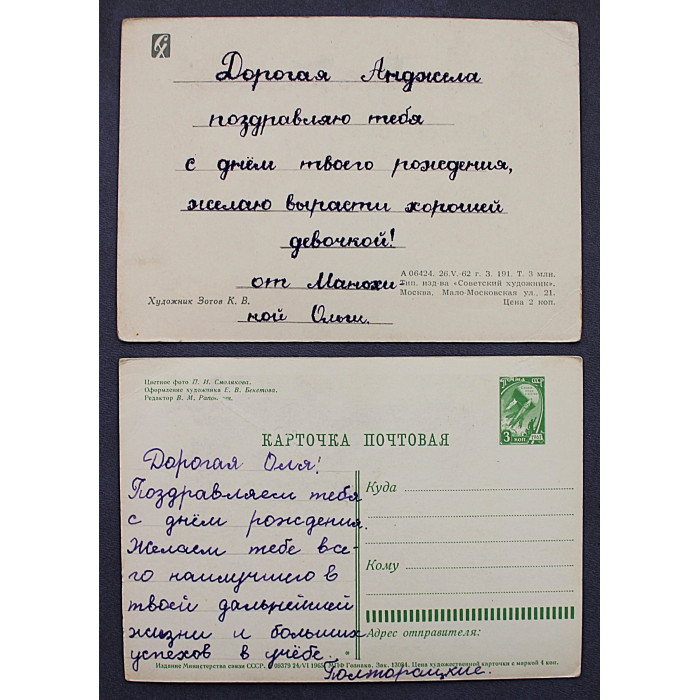 Дорогая Анджела
поздравляю тебя
с днём твоего рождения,
желаю вырасти хорошей
девочкой!
от Манохи-
ной Ольги.
Художник Зотов К. В.
А 06424. 26.V.-62 г. З. 191. Т. 3 млн.
Тип. изд-ва «Советский художник»,
Москва, Мало-Московская ул., 21.
Цена 2 коп.
Цветное фото П. И. Смолякова.
Оформление художника Е. В. Бекетова.
Редактор В. М.
ПОЧТА СССР
3 коп. 1961
КАРТОЧКА ПОЧТОВАЯ
Дорогая Оля!
Поздравляем тебя
с днём рождения.
Желаем тебе все-
го наилучшего в
твоей дальнейшей
жизни и больших
успехов в учёбе.
Полторацкие.
Куда
Кому
Адрес отправителя:
Издание Министерства связи СССР. 00379 24/VI 196 МПФ Гознака. Зак. 13084. Цена художественной карточки с маркой 4 коп.